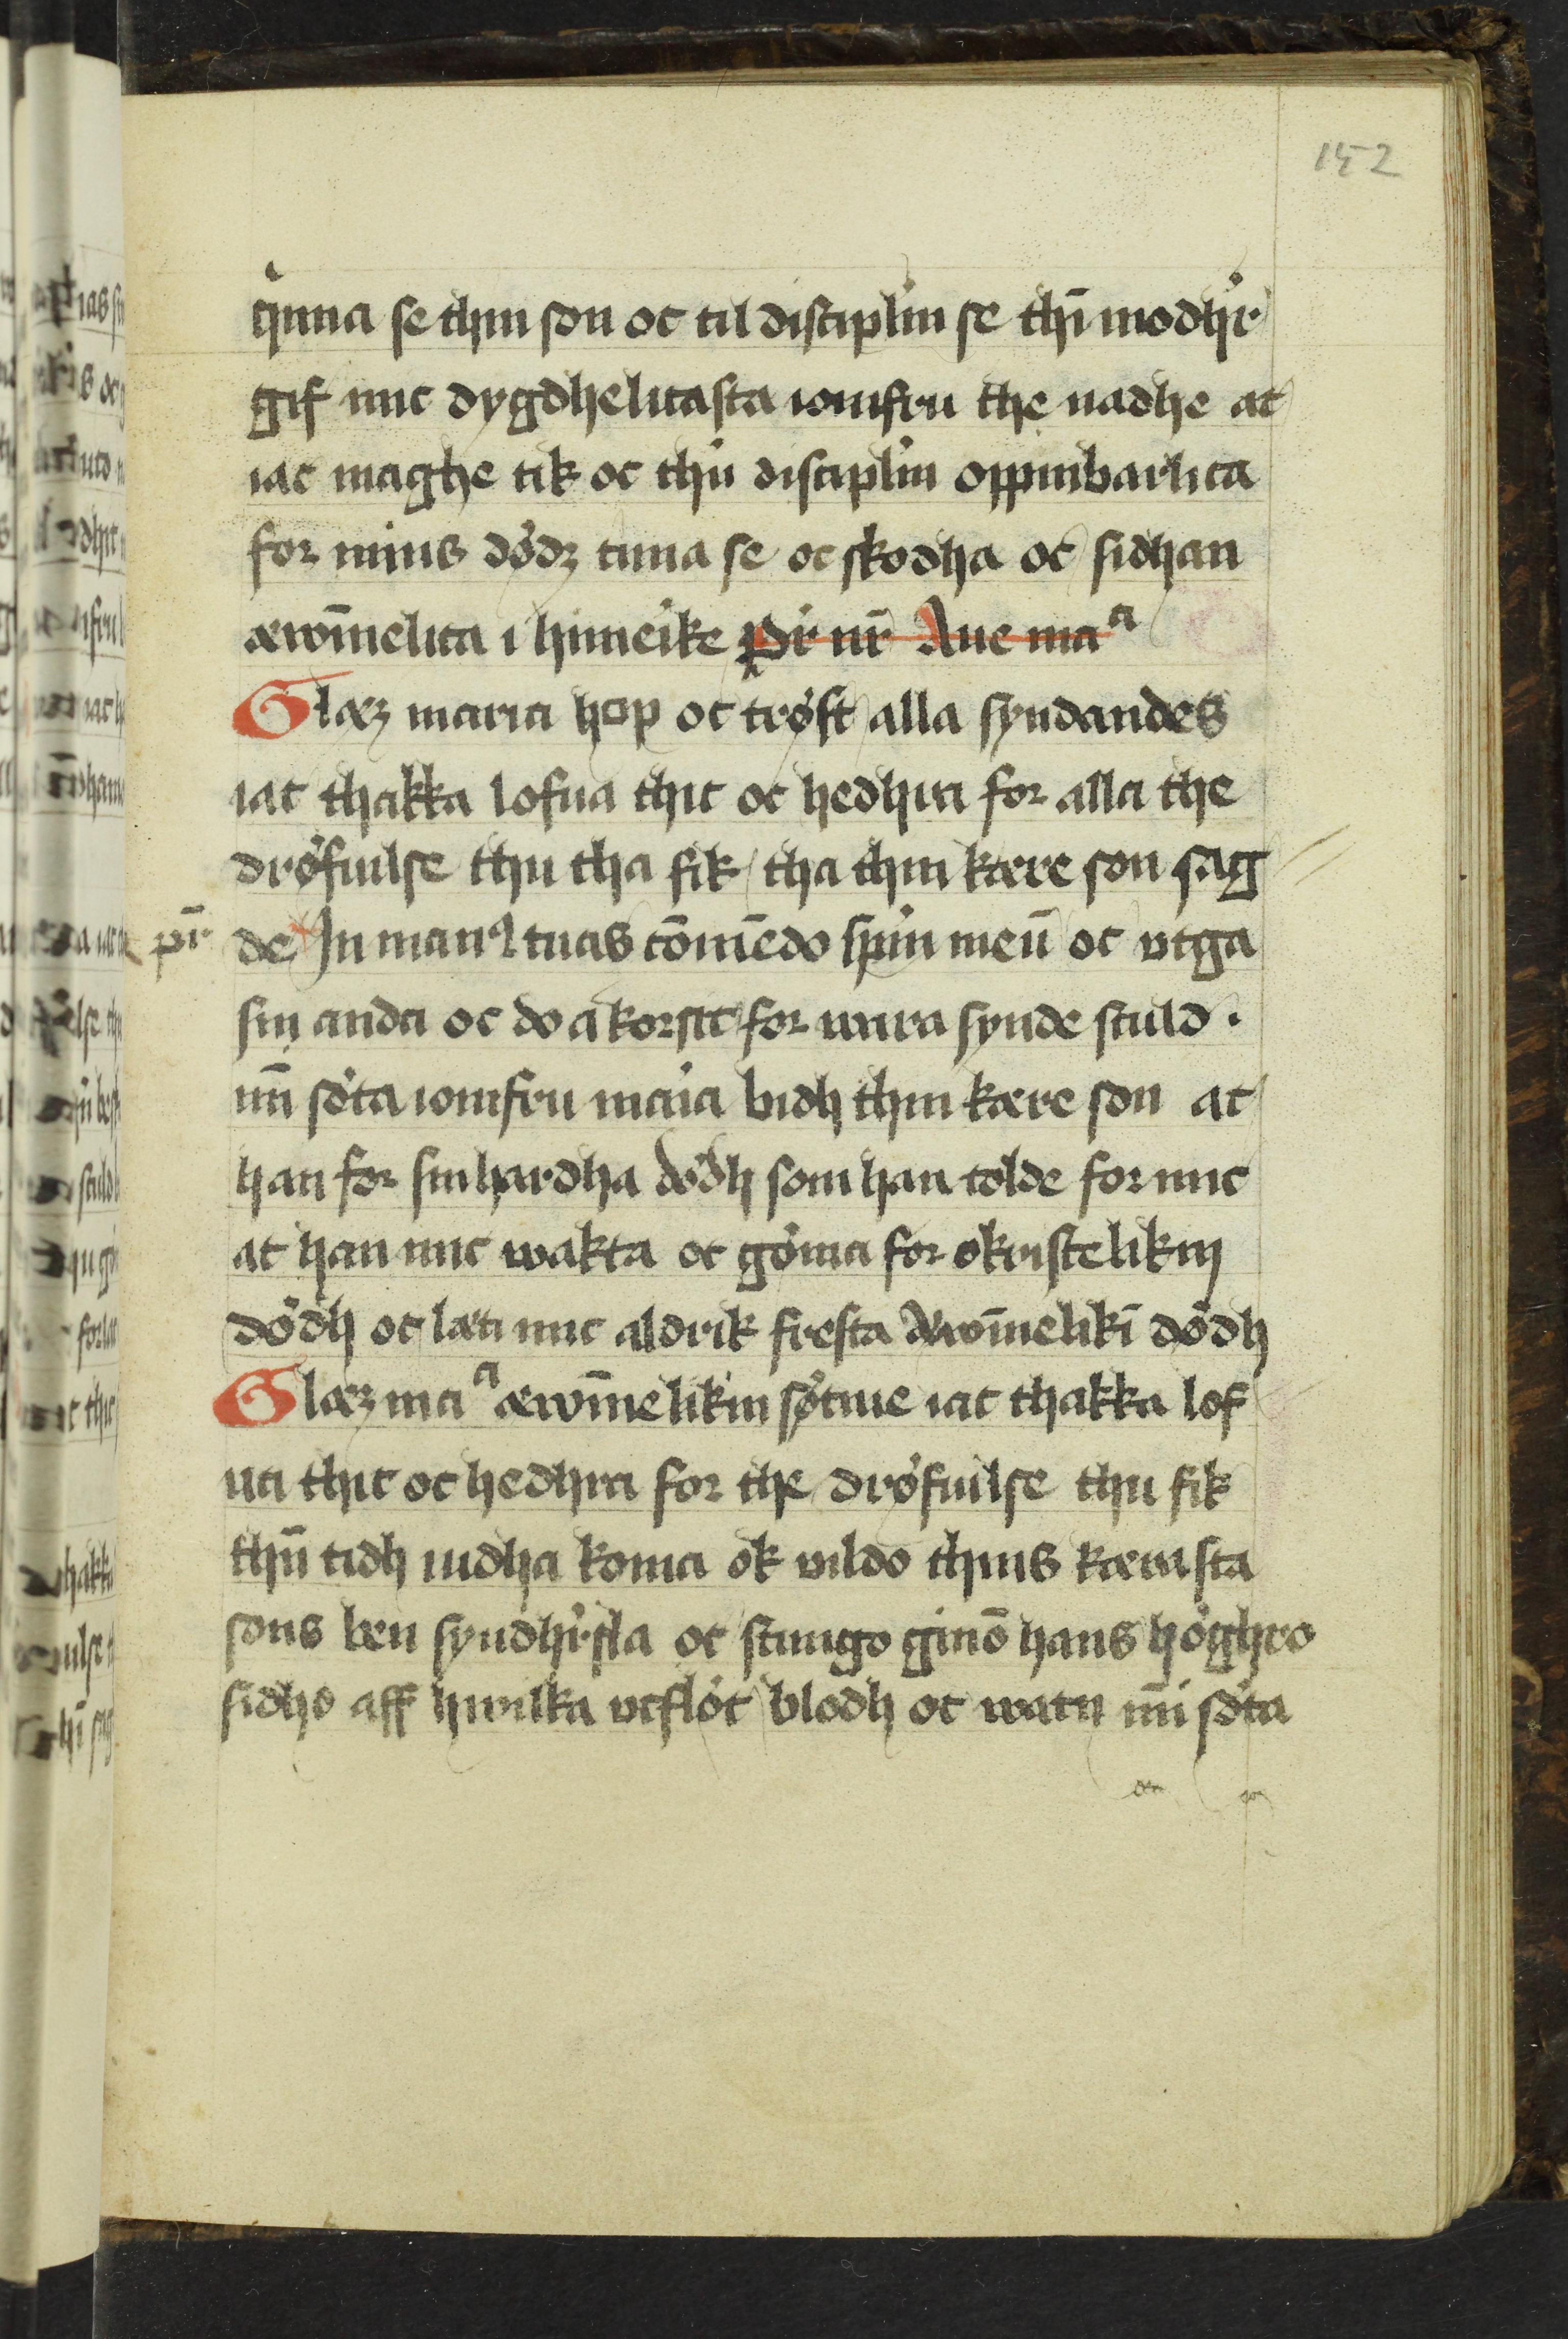 152
qͥnna se thin son oc til disciplin se thī modhˀr
gif mic dygdhelicasta iomfru the nadhe at
iac maghe tik oc thin disciplin oppinbarlica
for mins dödz tima se oc skodha oc sidhan
æwīnelica i himerike Pr̄ nr̄ Aue maᵃ
Glæz maria hop oc tröst alla syndandes
iac thakka lofua thic oc hedhra for alla the
dröfuilse thu tha fik tha thin kære son sag
pr̄ de In manꝰ tuas cōmēdo spm̄ meū oc vtga
sin anda oc do a korsit for wara synde sculd ·
mī söta iomfru maria bidh thin kære son at
han for sin hardha dödh som han tolde for mic
at han mic wakta oc göma for okristelikin
dödh oc læti mic aldrik fresta æwīnelikī dödh
Glæz maᵃ æwīnelikin sötme iac thakka lof
ua thic oc hedhra for the dröfuilse thu fik
thn̄ tidh iudha koma ok vildo thins kærasta
sons ben syndhˀrsla oc stungo ginō hans höghro
sidho aff hwilka vtflöt blodh oc watn mī söta